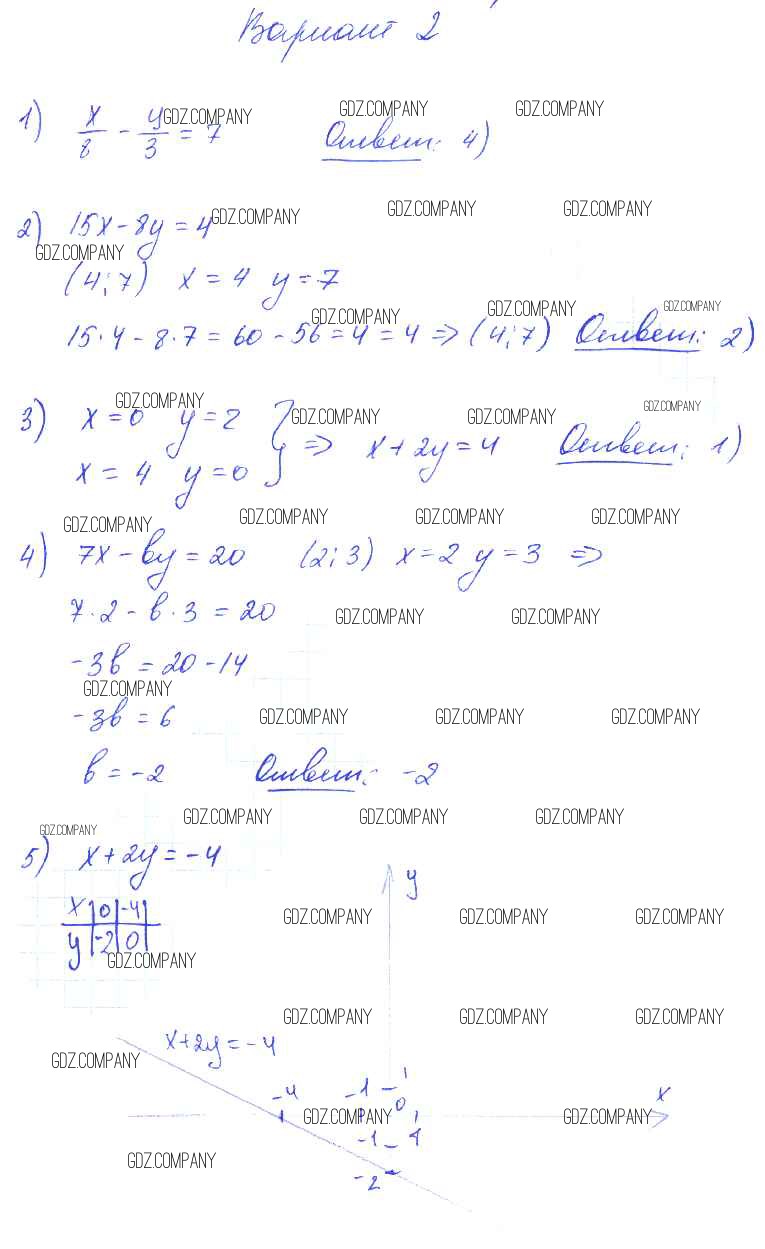 Вариант 2
1) x/8 - y/3 = 7 Ответ: 4)
2) 15x - 8y = 4
(4; 7) x = 4 y = 7
15·4 - 8·7 = 60 - 56 = 4 = 4 => (4; 7) Ответ: 2)
3) x = 0 y = 2
x = 4 y = 0 } => x + 2y = 4 Ответ: 1)
4) 7x - by = 20 (2; 3) x = 2 y = 3 =>
7·2 - b·3 = 20
-3b = 20 - 14
-3b = 6
b = -2 Ответ: -2
5) x + 2y = -4
x | 0 | -4 |
y | -2 | 0 |
y
x + 2y = -4
-4 -1 1 0 1 x
-1
-2
GDZ.COMPANY